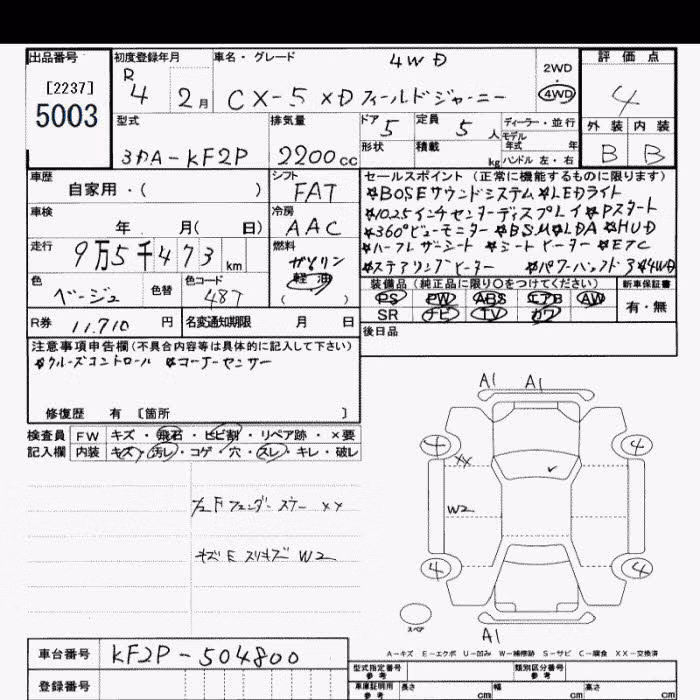 出品番号 初度登録年月 車名・グレード 4WD 2WD 評価点
[2237] R
5003 4 2月 CX-5 XD フィールドジャーニー 4WD 4
型式 排気量 ドア 5 定員 5人 ディーラー・並行 外装 内装
モデル年式 年
3DA-KF2P 2200cc 形状 積載 kg ハンドル 左・右 B B
車歴 シフト セールスポイント (正常に機能するものに限ります)
自家用・( ) FAT ☆BOSEサウンドシステム ☆LEDライト
車検 冷房 ☆10.25インチセンターディスプレイ ☆Pスタート
年 月( 日) AAC ☆360°ビューモニター ☆BSM ☆LDA ☆HUD
走行 燃料 ☆ハーフレザーシート ☆シートヒーター ☆ETC
9万5千473km ガソリン ☆ステアリングヒーター ☆パワーバックドア
軽油
( )
色 色替 色コード 装備品 (純正品に限り○をつけてください) 新車保証書
ベージュ 48T PS PW ABS エアB AW 有・無
SR ナビ TV カワ
R券 11,710円 名変通知期限 月 日 後日品
注意事項申告欄 (不具合内容等は具体的に記入して下さい)
☆クルーズコントロール ☆コーナーセンサー
修復歴 有 〔箇所 〕
検査員 FW キズ・飛石・ヒビ割・リペア跡・×要
記入欄 内装 キズ・汚レ・コゲ・穴・スレ・キレ・破レ
A1 A1
4 4
XX
W2
フェンダー ステー XX
キズ E スリキズ W2
4 4
スペア
A1
A-キズ E-エクボ U-凹み W-補修跡 S-サビ C-腐食 XX-交換済
車台番号 KF2P-504800
登録番号
型式指定番号 参考 類別区分番号 参考
車庫証明用 参考 長さ cm 幅 cm 高さ cm